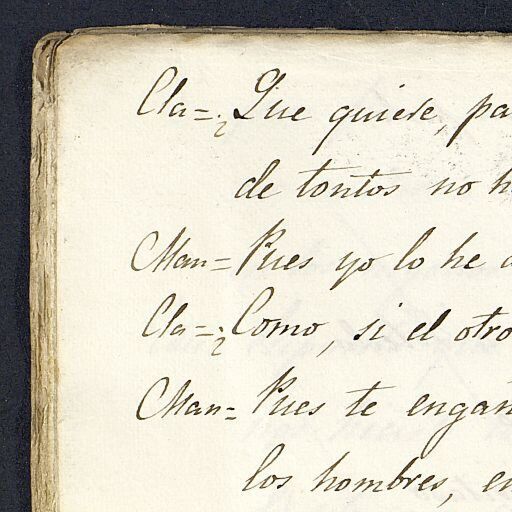 Cla=¿Que quiere, pa
de tontos no h
Man=Pues yo lo he
Cla=¿Como, si el otro
Man=Pues te engañ
los hombres, en